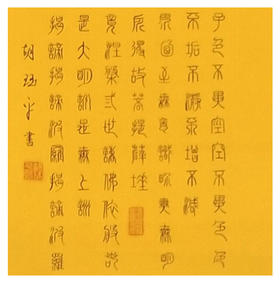 子色不異空空不異色色
不垢不淨不增不減
界乃至無意識界無無明
所得故菩提薩埵
竟涅槃三世諸佛依般若
是大明咒是無上咒
揭諦揭諦波羅揭諦波羅
胡 平書